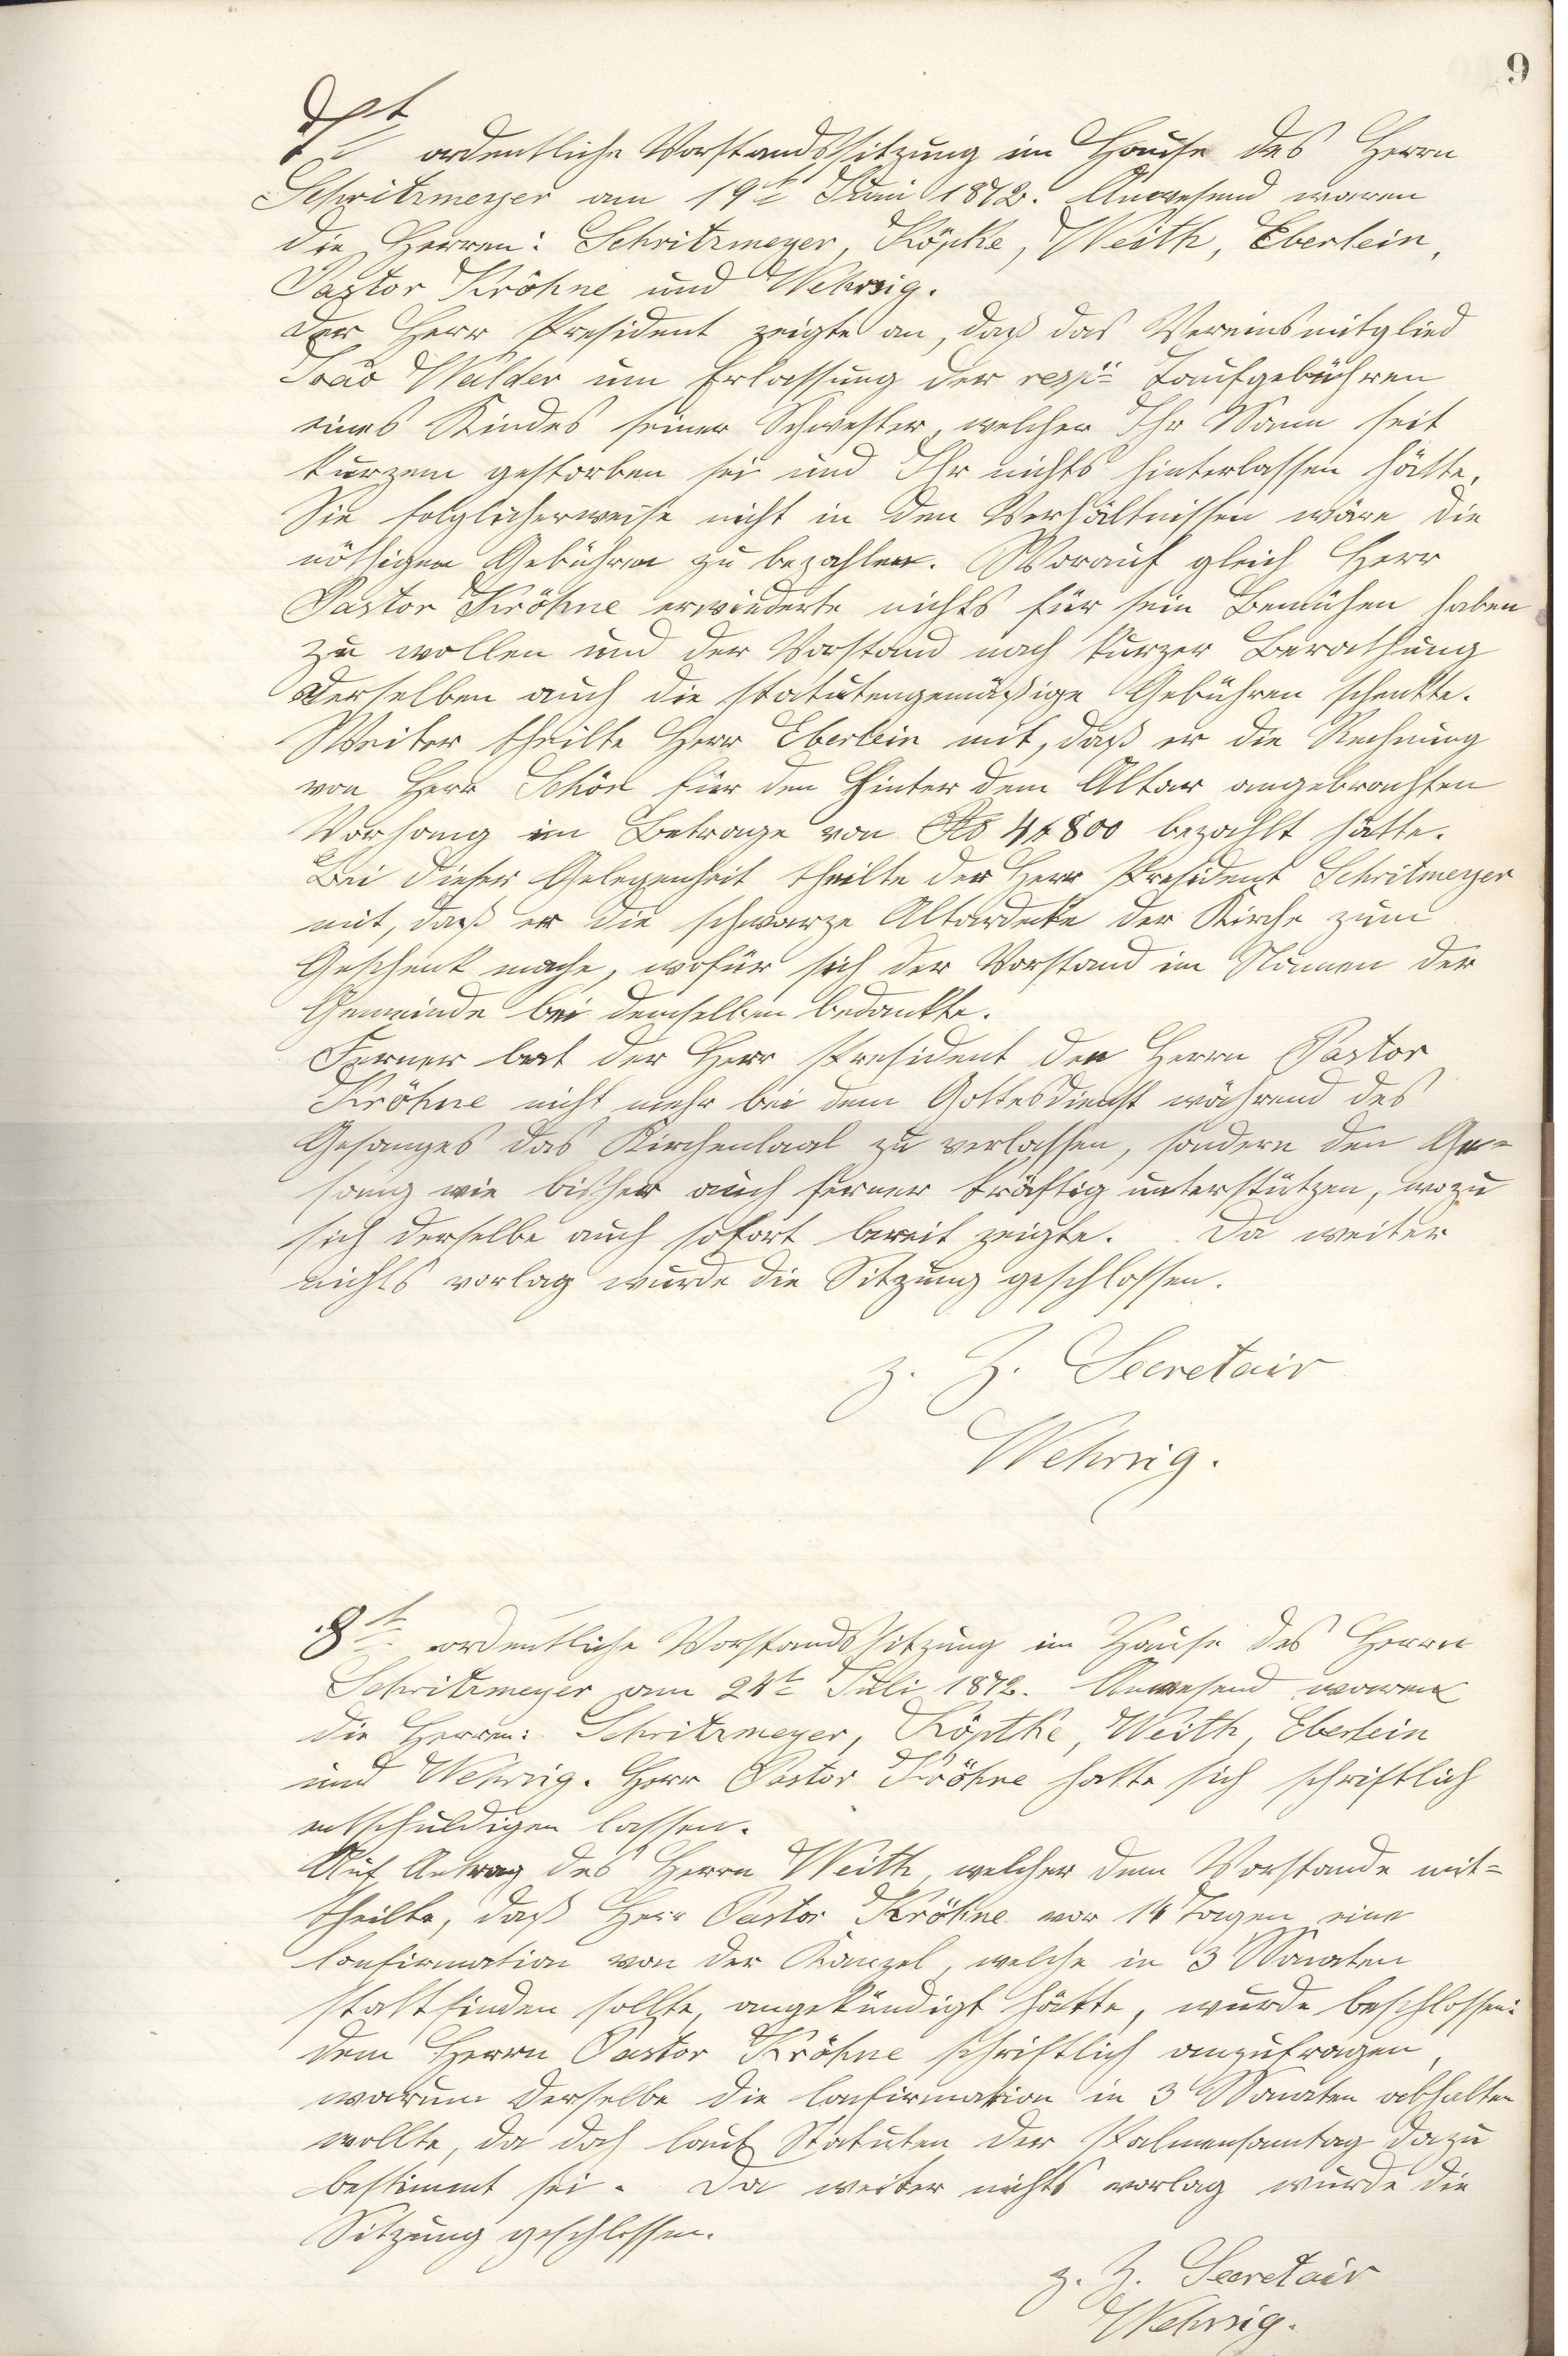 9
7t ordentliche Vorstandssitzung im Hause des Herrn
Schritzmeyer am 19t Juni 1872. Anwesend waren
die Herren: Schritzmeyer, Köpke, Weith, Eberlein,
Pastor Kröhne und Wehrsig.
Der Herr President zeigte an, daß das Vereinsmitglied
João Walder um Erlassung der resp. Taufgebühren
eines Kindes seiner Schwester, welcher Ihr Mann seit
kurzem gestorben sei und Ihr nichts hinterlassen hätte,
Sie folglicherweise nicht in den Verhältnissen wäre die
nöthigen Gebühren zu bezahlen. Worauf gleich Herr
Pastor Kröhne erwiederte nichts für sein Bemühen haben
zu wollen und der Vorstand nach kurzer Berathung
derselben auch die statutengemäßige Gebühren schenkte.
Weiter theilte Herr Eberlein mit, daß er die Rechnung
von Herr Schön für den hinter dem Altar angebrachten
Vorhang im Betrage von Rs 4$800 bezahlt hätte.
Bei dieser Gelegenheit theilte der Herr President Schritmeyer
mit, daß er die schwarze Altardecke der Kirche zum
Geschenk mache, wofür sich der Vorstand im Namen der
Gemeinde bei demselben bedankte.
Ferner bat der Herr President den Herrn Pastor
Kröhne nicht mehr bei dem Gottesdienst während des
Gesanges das Kirchenlaal zu verlassen, sondern den Ge-
sang wie bisher auch ferner kräftig unterstützen, wozu
sich derselbe auch sofort bereit zeigte. Da weiter
nichts vorlag wurde die Sitzung geschlossen.
z. Z. Secretair
Wehrsig.
8t ordentliche Vorstandssitzung im Hause des Herrn
Schritzmeyer am 24t Juli 1872. Anwesend waren
die Herren: Schritzmeyer, Köptke, Weith, Eberlein
und Wehrsig. Herr Pastor Kröhne hatte sich schriftlich
entschuldigen lassen.
Auf Antrag des Herrn Weith, welcher dem Vorstande mit-
theilte, daß Herr Pastor Kröhne vor 14 Tagen eine
Confirmation von der Kanzel, welche in 3 Monaten
stattfinden sollte, angekündigt hätte, wurde beschlossen:
dem Herrn Pastor Kröhne schriftlich anzufragen,
warum derselbe die Confirmation in 3 Monaten abhalten
wollte, da doch laut Statuten der Palmensonntag dazu
bestimmt sei. Da weiter nichts vorlag wurde die
Sitzung geschlossen.
z. Z. Secretair
Wehrsig.